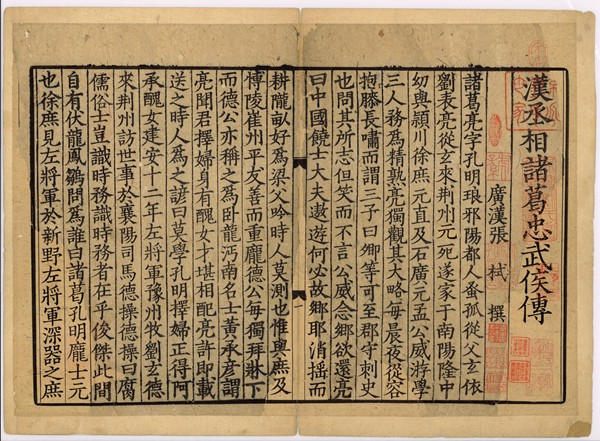 漢丞相諸葛忠武侯傳
廣漢張 栻 撰
諸葛亮字孔明琅邪陽都人蚤孤從父玄依
劉表亮從玄來荆州元死遂家于南陽隆中
幼與潁川徐庶元直及石廣元孟公威游學
三人務為精熟亮獨觀其大略每晨夜從容
抱膝長嘯而謂三子曰卿等可至郡守刺史
也問其所志但笑而不言公威念鄉欲還亮
曰中國饒士大夫遨遊何必故鄉耶消摇而
耕隴畝好為梁父吟時人莫測也惟與庶及
博陵崔州平友善而重龐德公每獨拜牀下
而德公亦稱之為臥龍沔南名士黃承彥謂
亮聞君擇婦身有醜女才堪相配亮許即載
送之時人為之諺曰莫學孔明擇婦正得阿
承醜女建安十二年左將軍豫州牧劉玄德
來荆州訪世事於襄陽司馬德操德操曰腐
儒俗士豈識時務識時務者在乎俊傑此間
自有伏龍鳳鶵問為誰曰諸葛孔明龐士元
也徐庶見左將軍於新野左將軍深器之庶